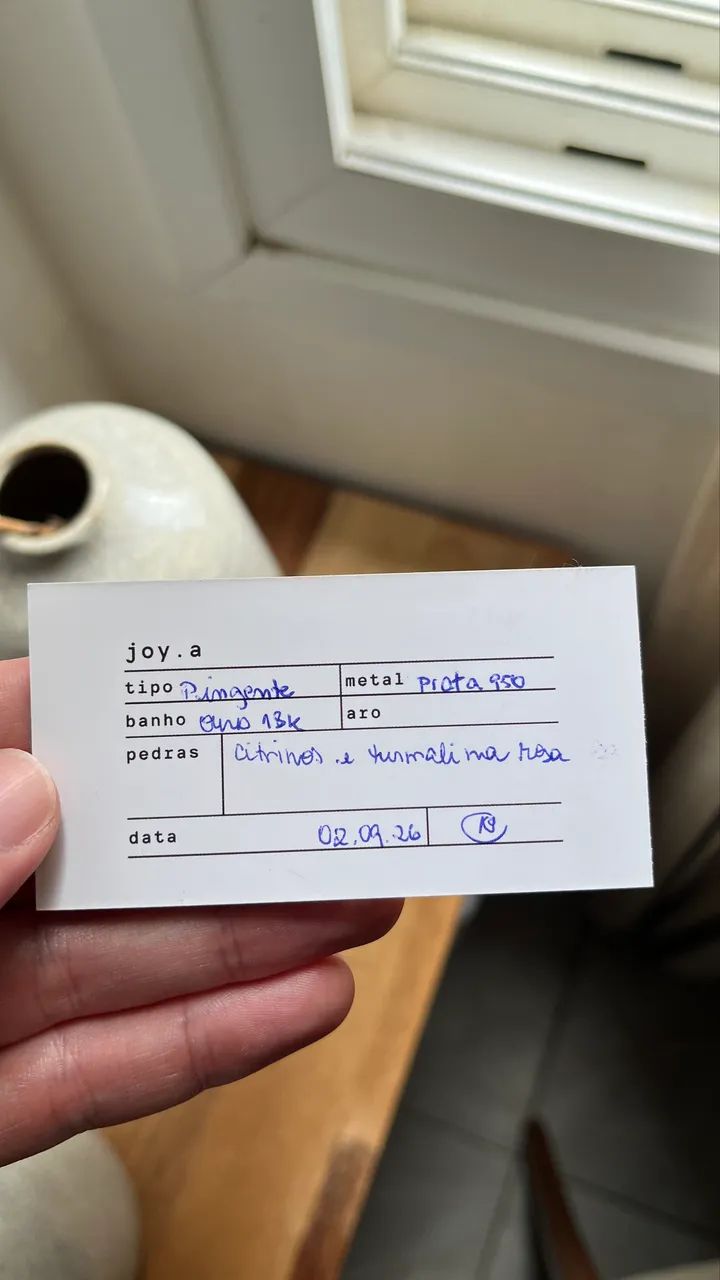 joy.a
tipo Pingente metal Prata 950
banho ouro 18k aro
pedras citrinos e turmalina rosa
data 02.09.26